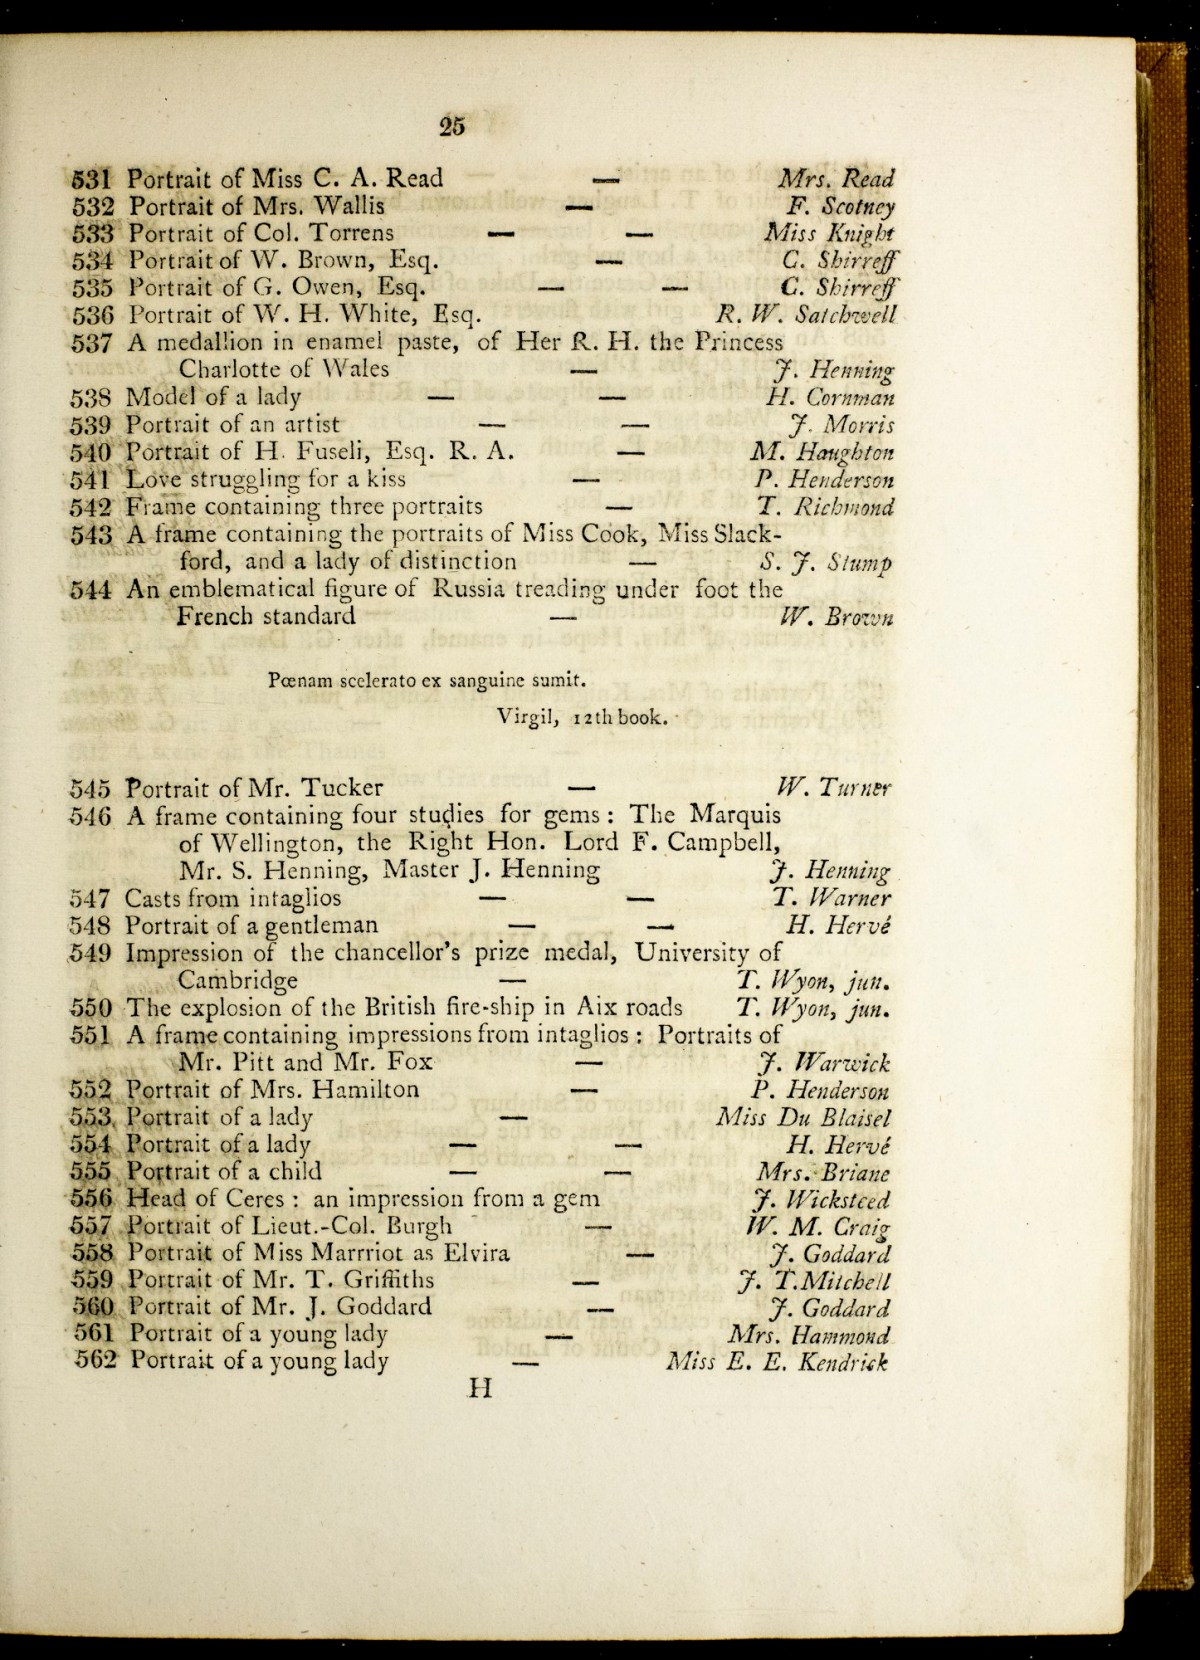 25
531 Portrait of Miss C. A. Read — Mrs. Read
532 Portrait of Mrs. Wallis — F. Scotney
533 Portrait of Col. Torrens — — Miss Knight
534 Portrait of W. Brown, Esq. — C. Shirreff
535 Portrait of G. Owen, Esq. — — C. Shirreff
536 Portrait of W. H. White, Esq. R. W. Satchwell
537 A medallion in enamel paste, of Her R. H. the Princess
Charlotte of Wales — J. Henning
538 Model of a lady — — H. Cornman
539 Portrait of an artist — — J. Morris
540 Portrait of H. Fuseli, Esq. R. A. — M. Haughton
541 Love struggling for a kiss — P. Henderson
542 Frame containing three portraits — T. Richmond
543 A frame containing the portraits of Miss Cook, Miss Slack-
ford, and a lady of distinction — S. J. Stump
544 An emblematical figure of Russia treading under foot the
French standard — W. Brown
Pœnam scelerato ex sanguine sumit.
Virgil, 12th book.
545 Portrait of Mr. Tucker — W. Turner
546 A frame containing four studies for gems : The Marquis
of Wellington, the Right Hon. Lord F. Campbell,
Mr. S. Henning, Master J. Henning J. Henning
547 Casts from intaglios — — T. Warner
548 Portrait of a gentleman — — H. Hervé
549 Impression of the chancellor's prize medal, University of
Cambridge — T. Wyon, jun.
550 The explosion of the British fire-ship in Aix roads T. Wyon, jun.
551 A frame containing impressions from intaglios : Portraits of
Mr. Pitt and Mr. Fox — J. Warwick
552 Portrait of Mrs. Hamilton — P. Henderson
553 Portrait of a lady — Miss Du Blaisel
554 Portrait of a lady — — H. Hervé
555 Portrait of a child — — Mrs. Briane
556 Head of Ceres : an impression from a gem J. Wicksteed
557 Portrait of Lieut.-Col. Burgh — W. M. Craig
558 Portrait of Miss Marrriot as Elvira — J. Goddard
559 Portrait of Mr. T. Griffiths — J. T. Mitchell
560 Portrait of Mr. J. Goddard — J. Goddard
561 Portrait of a young lady — Mrs. Hammond
562 Portrait of a young lady — Miss E. E. Kendrick
H